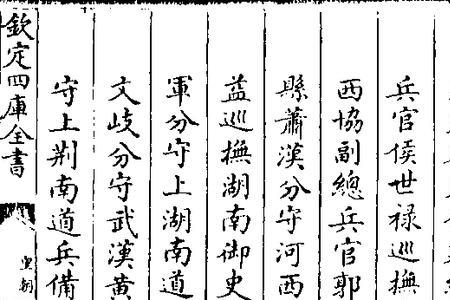 兵官侯世禄巡撫
西協副總兵官郭
縣蕭漢分守河西
益巡撫湖南御史
軍分守上湖南道
文岐分守武漢黄
守上荆南道兵備
欽定四庫全書
皇朝